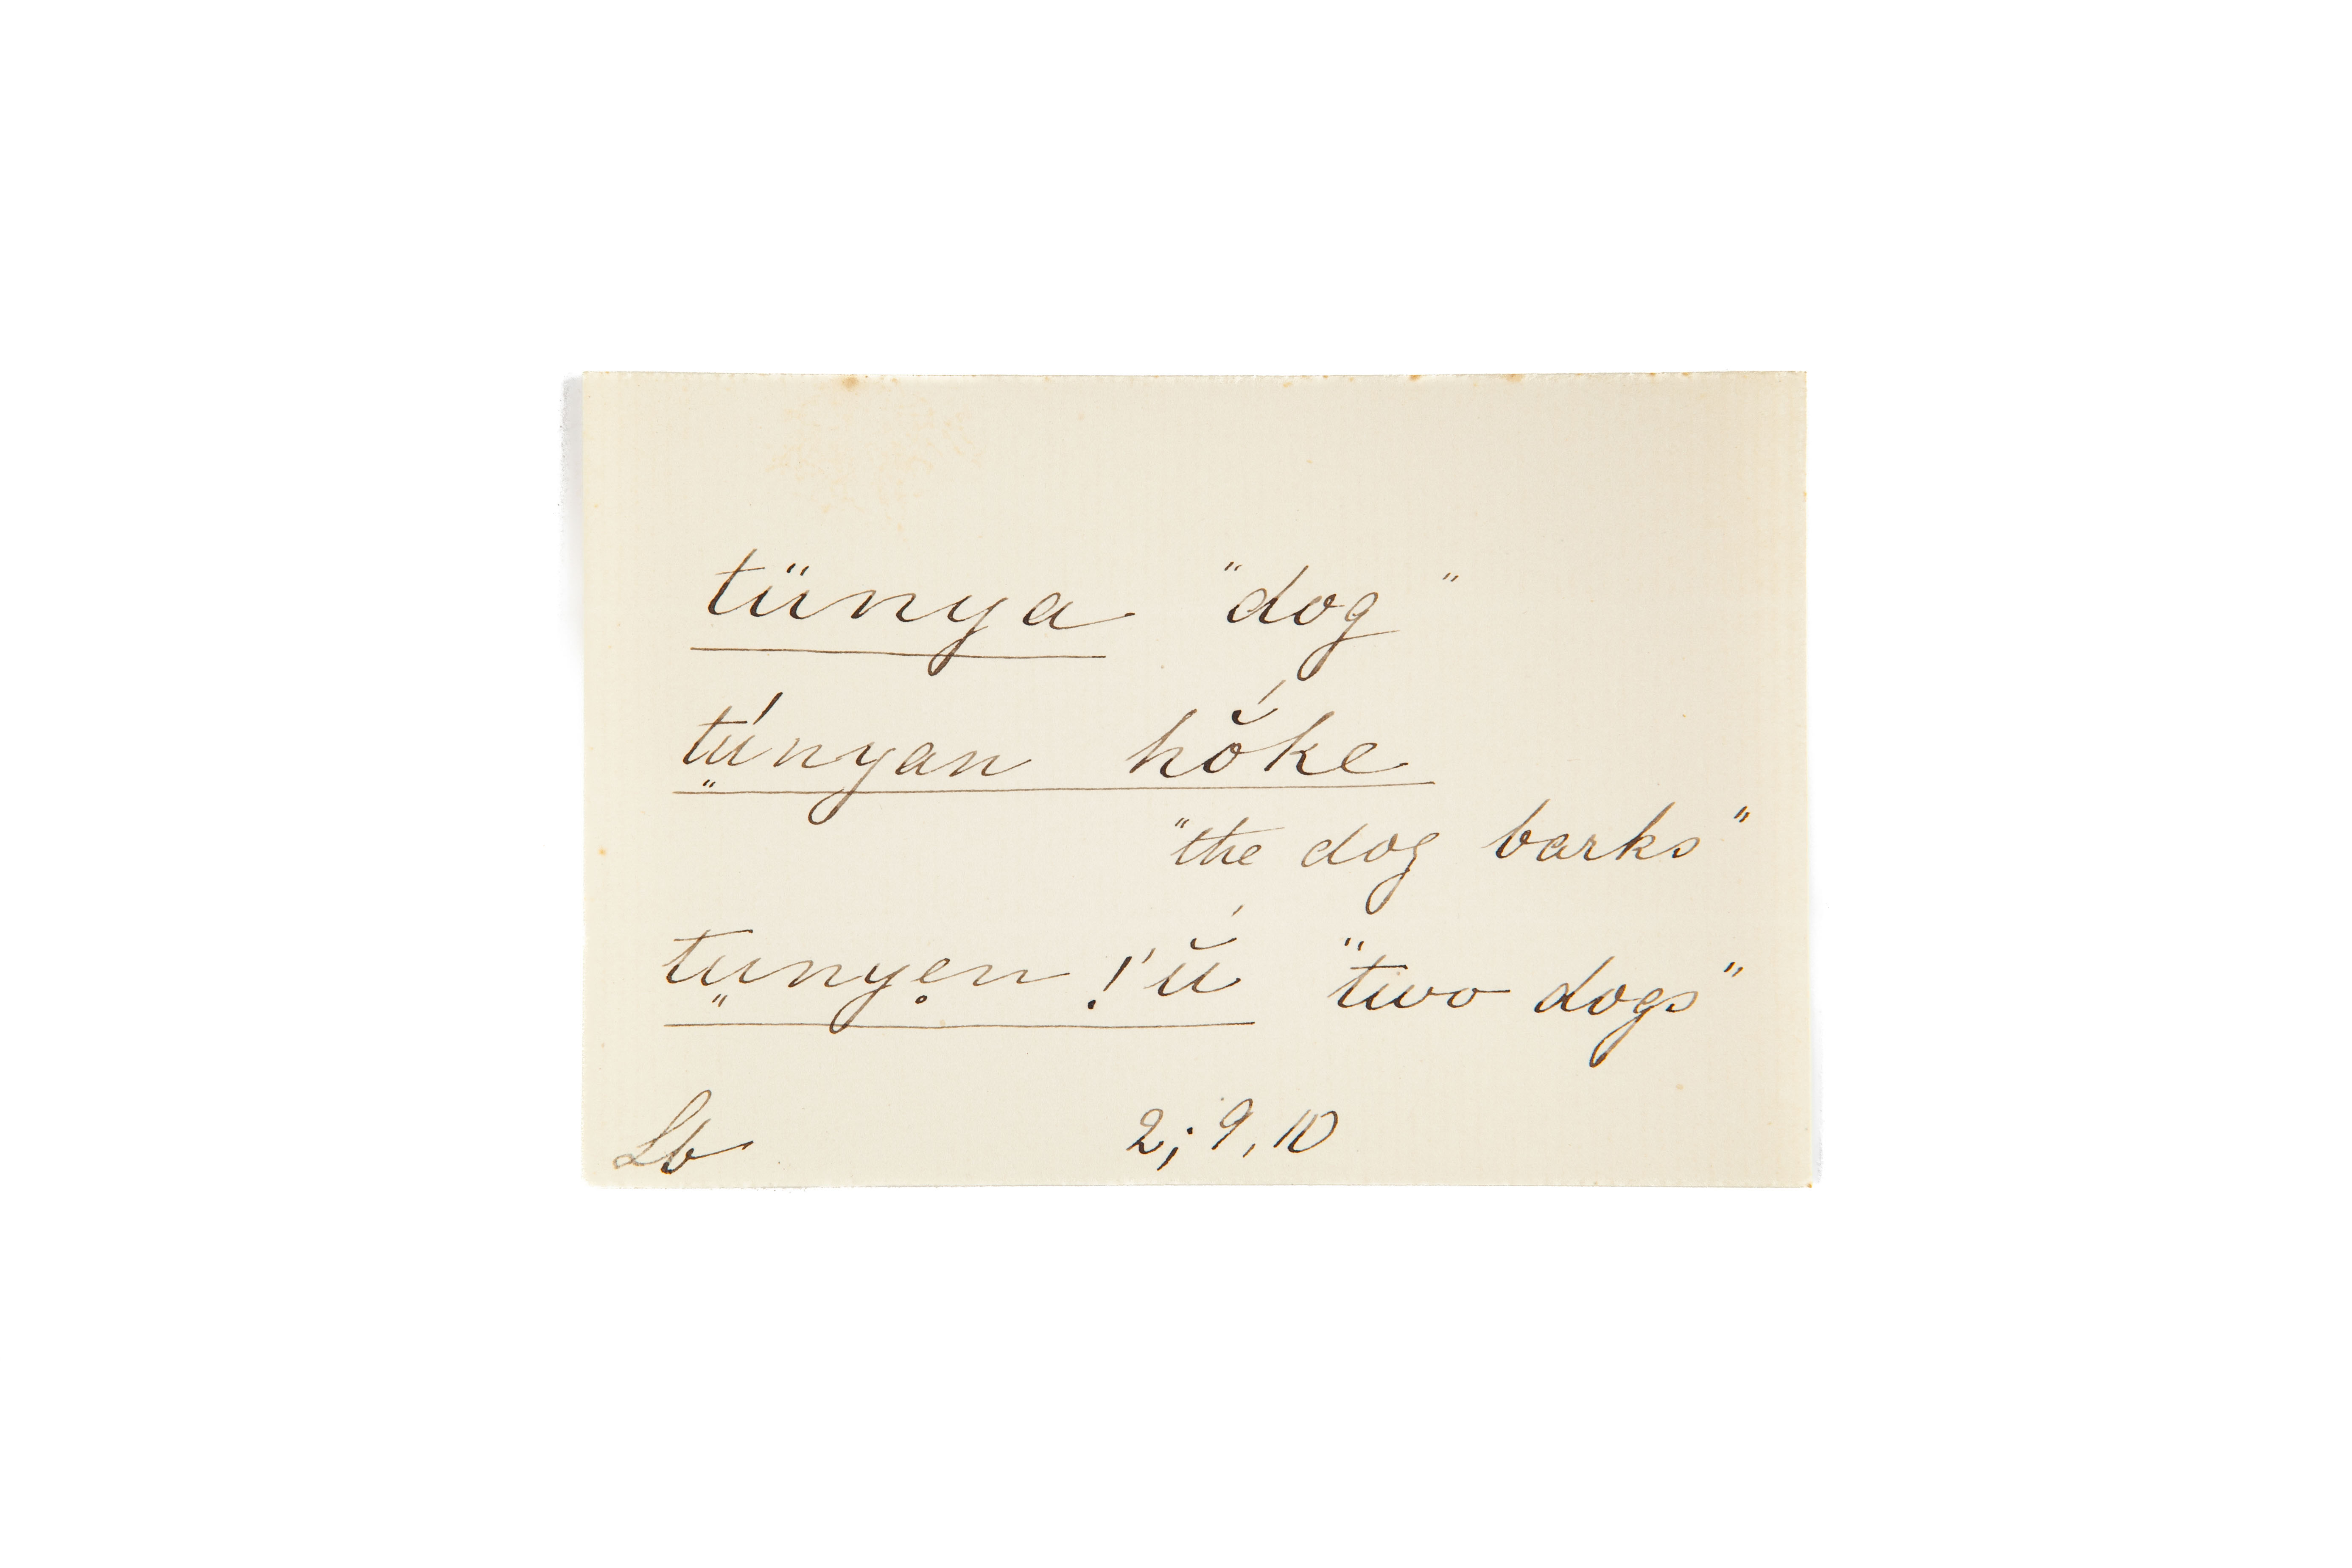 tünya "dog"
tṳ́nyan hŏ́ke
"the dog barks"
tṳnyẹn !´ŭ́ "two dogs"
Lb 2; 9, 10